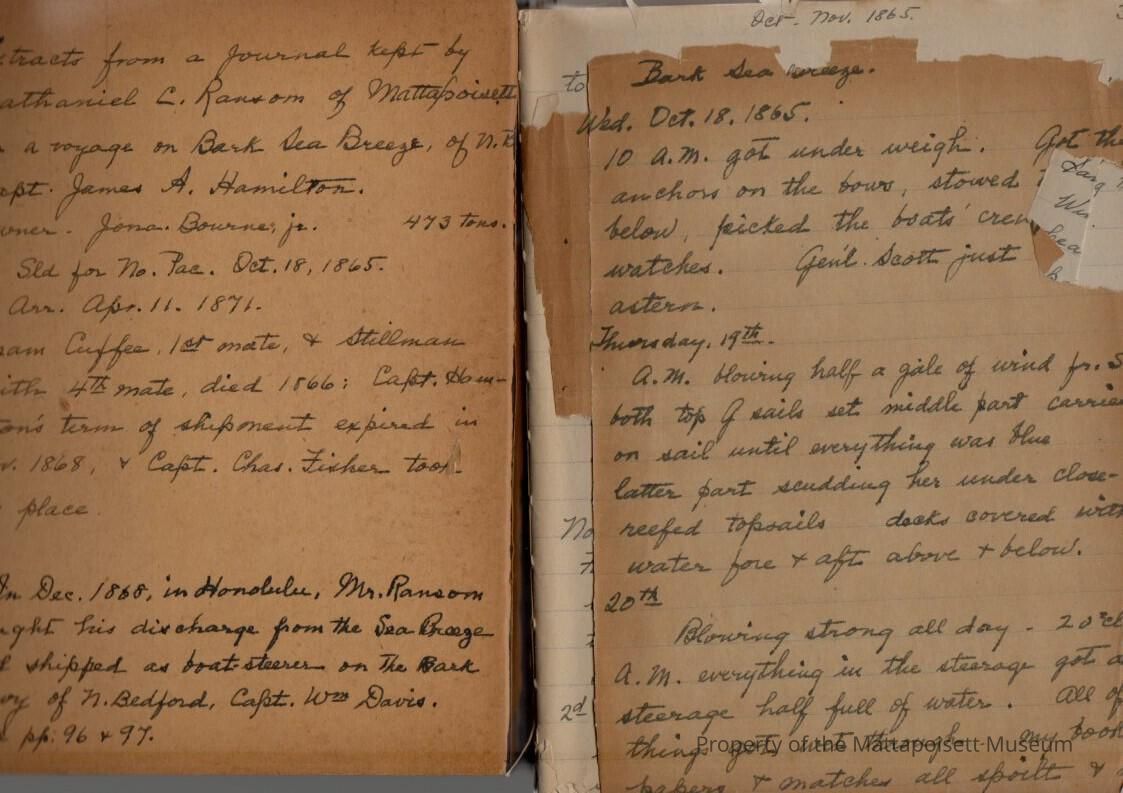 tracts from a journal kept by
athaniel C. Ransom of Mattapoisett
a voyage on Bark Sea Breeze, of N.B
apt. James A. Hamilton.
wner. Jona. Bourne, jr. 473 tons.
Sld for No. Pac. Oct. 18, 1865.
Arr. Apr. 11. 1871.
am Cuffee, 1st mate, & Stillman
ith 4th mate, died 1866: Capt. Ham-
on's term of shipment expired in
v. 1868, & Capt. Chas. Fisher took
place.
In Dec. 1868, in Honolulu, Mr. Ransom
ught his discharge from the Sea Breeze
shipped as boat-steerer on the Bark
vy of N. Bedford, Capt. Wm Davis.
pp. 96 & 97.
Oct - Nov. 1865.
to
Bark Sea Breeze.
Wed. Oct. 18. 1865.
10 A.M. got under weigh. Got the
anchors on the bows, stowed
below, picked the boats' crew
watches. Gen'l. Scott just
astern.
Thursday, 19th.
A.M. blowing half a gale of wind fr. S
both top G sails set middle part carried
on sail until everything was blue
latter part scudding her under close-
reefed topsails decks covered with
water fore & aft above & below.
No
20th
Blowing strong all day - 20
A.M. everything in the steerage got a
2d
steerage half full of water. All of
things got wet through my book
papers & matches all spoilt &
Property of the Mattapoisett Museum